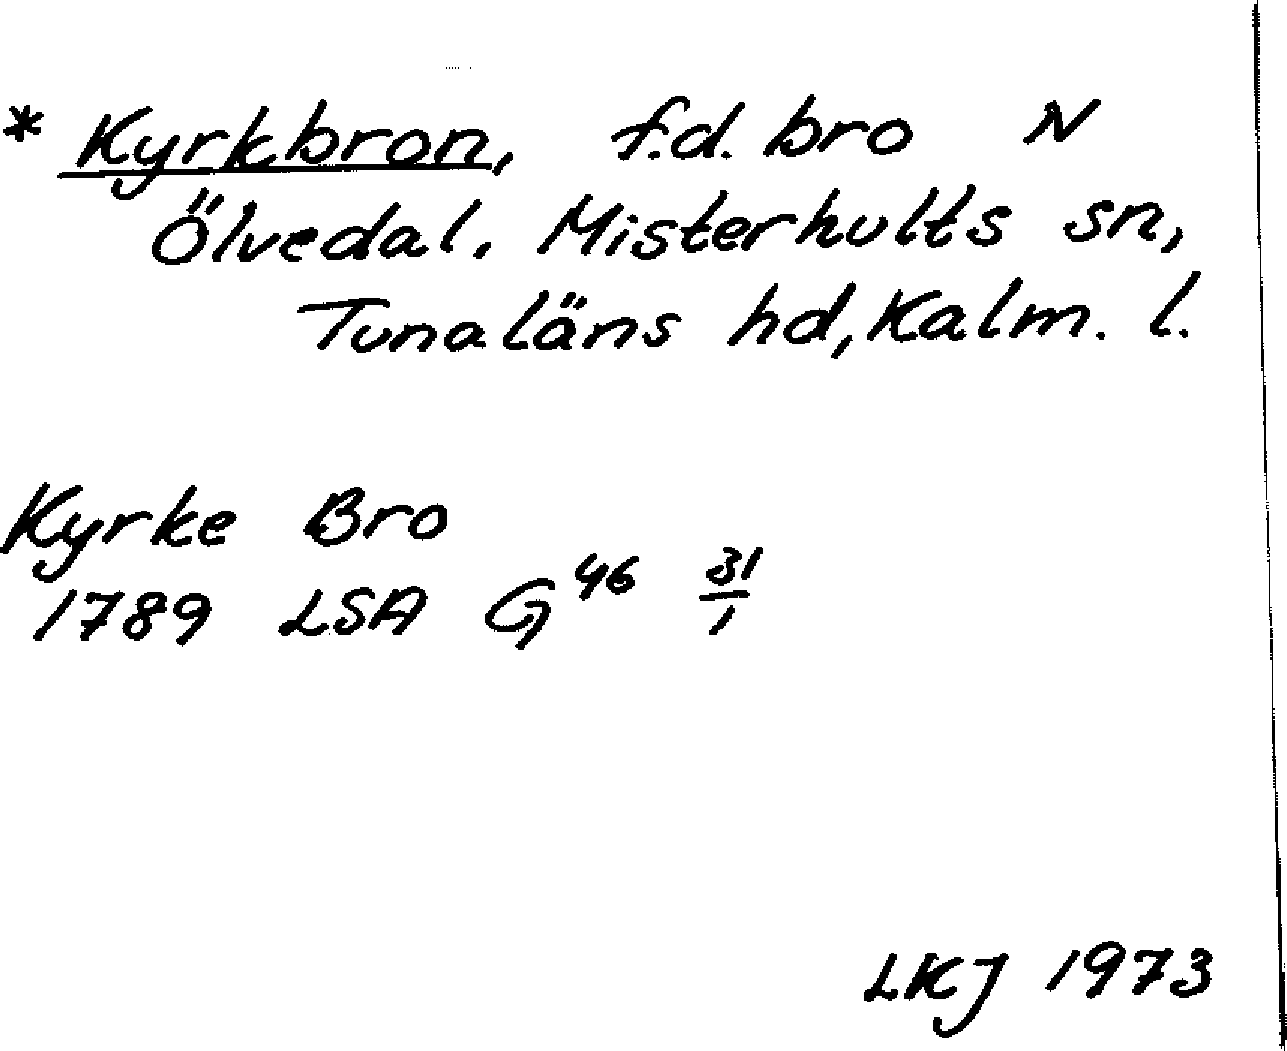 * Kyrkbron, f.d. bro N
Ölvedal, Misterhults sn,
Tunaläns hd, Kalm. l.
Kyrke Bro
1789 LSA G 46 31/1
LKJ 1973